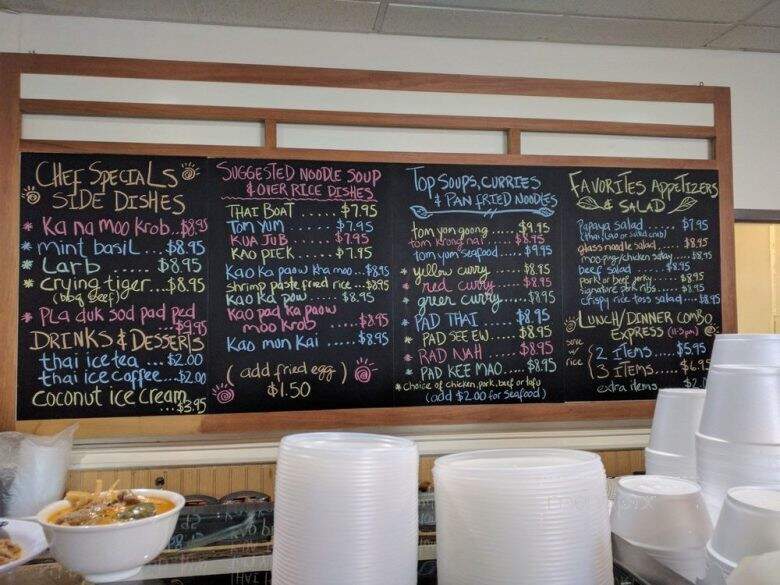 CHEF SPECIALS
SIDE DISHES
* Ka na moo krob..$8.95
* mint basil ... $8.95
* Larb ..... $8.95
* Crying tiger....$8.95
(bbq beef)
* Pla duk sod pad ped
...$9.95
DRINKS & DESSERTS
thai ice tea ... $2.00
thai ice coffee...$2.00
Coconut ice cream
...$3.95
SUGGESTED NOODLE SOUP
& OVER RICE DISHES
THAI BOAT ..... $7.95
TOM YUM ..... $7.95
KUA JUB ..... $7.95
KAO PIEK .... $7.95
Kao Ka paow kha moo...$8.95
shrimp paste fried rice...$8.95
Kao Ka pow ..... $8.95
Kao pad ka paow
moo krob .....$8.95
Kao mun Kai .....$8.95
(add fried egg)
$1.50
TOP SOUPS, CURRIES
& PAN FRIED NOODLES
tom yom goong ....$9.95
tom krong nai ....$8.95
tom yom seafood....$9.95
* yellow curry.....$8.95
* red curry.....$8.95
* green curry.....$8.95
* PAD THAI .....$8.95
* PAD SEE EW.....$8.95
* RAD NAH .....$8.95
* PAD KEE MAO....$8.95
* Choice of chicken, pork, beef or tofu
(add $2.00 for seafood)
FAVORITES APPETIZERS
& SALAD
Papaya salad ..... $7.95
(thai, lao or salad crab)
glass noodle salad....$8.95
moo ping/chicken satay....$8.95
beef salad .....$8.95
pork or beef jerky....$8.95
signature pork ribs....$8.95
crispy rice toss salad....$8.95
LUNCH/DINNER COMBO
EXPRESS (11-5pm)
serve w/ rice
2 ITEMS....$5.95
3 ITEMS....$6.95
extra items $2.